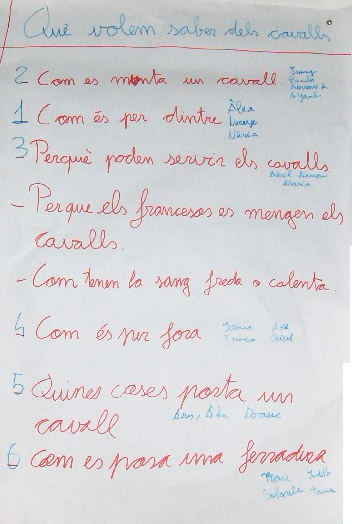 Què volem saber dels cavalls
2 Com es monta un cavall.
1 Com és per dintre Àlex
Núria
3 Perquè poden servir els cavalls
Maria
- Perque els francesos es mengen els
cavalls.
- Com tenen la sang freda o calenta.
4 Com és per fora
5 Quines coses porta un
cavall
6 Com es posa una ferradura
Marc Judith